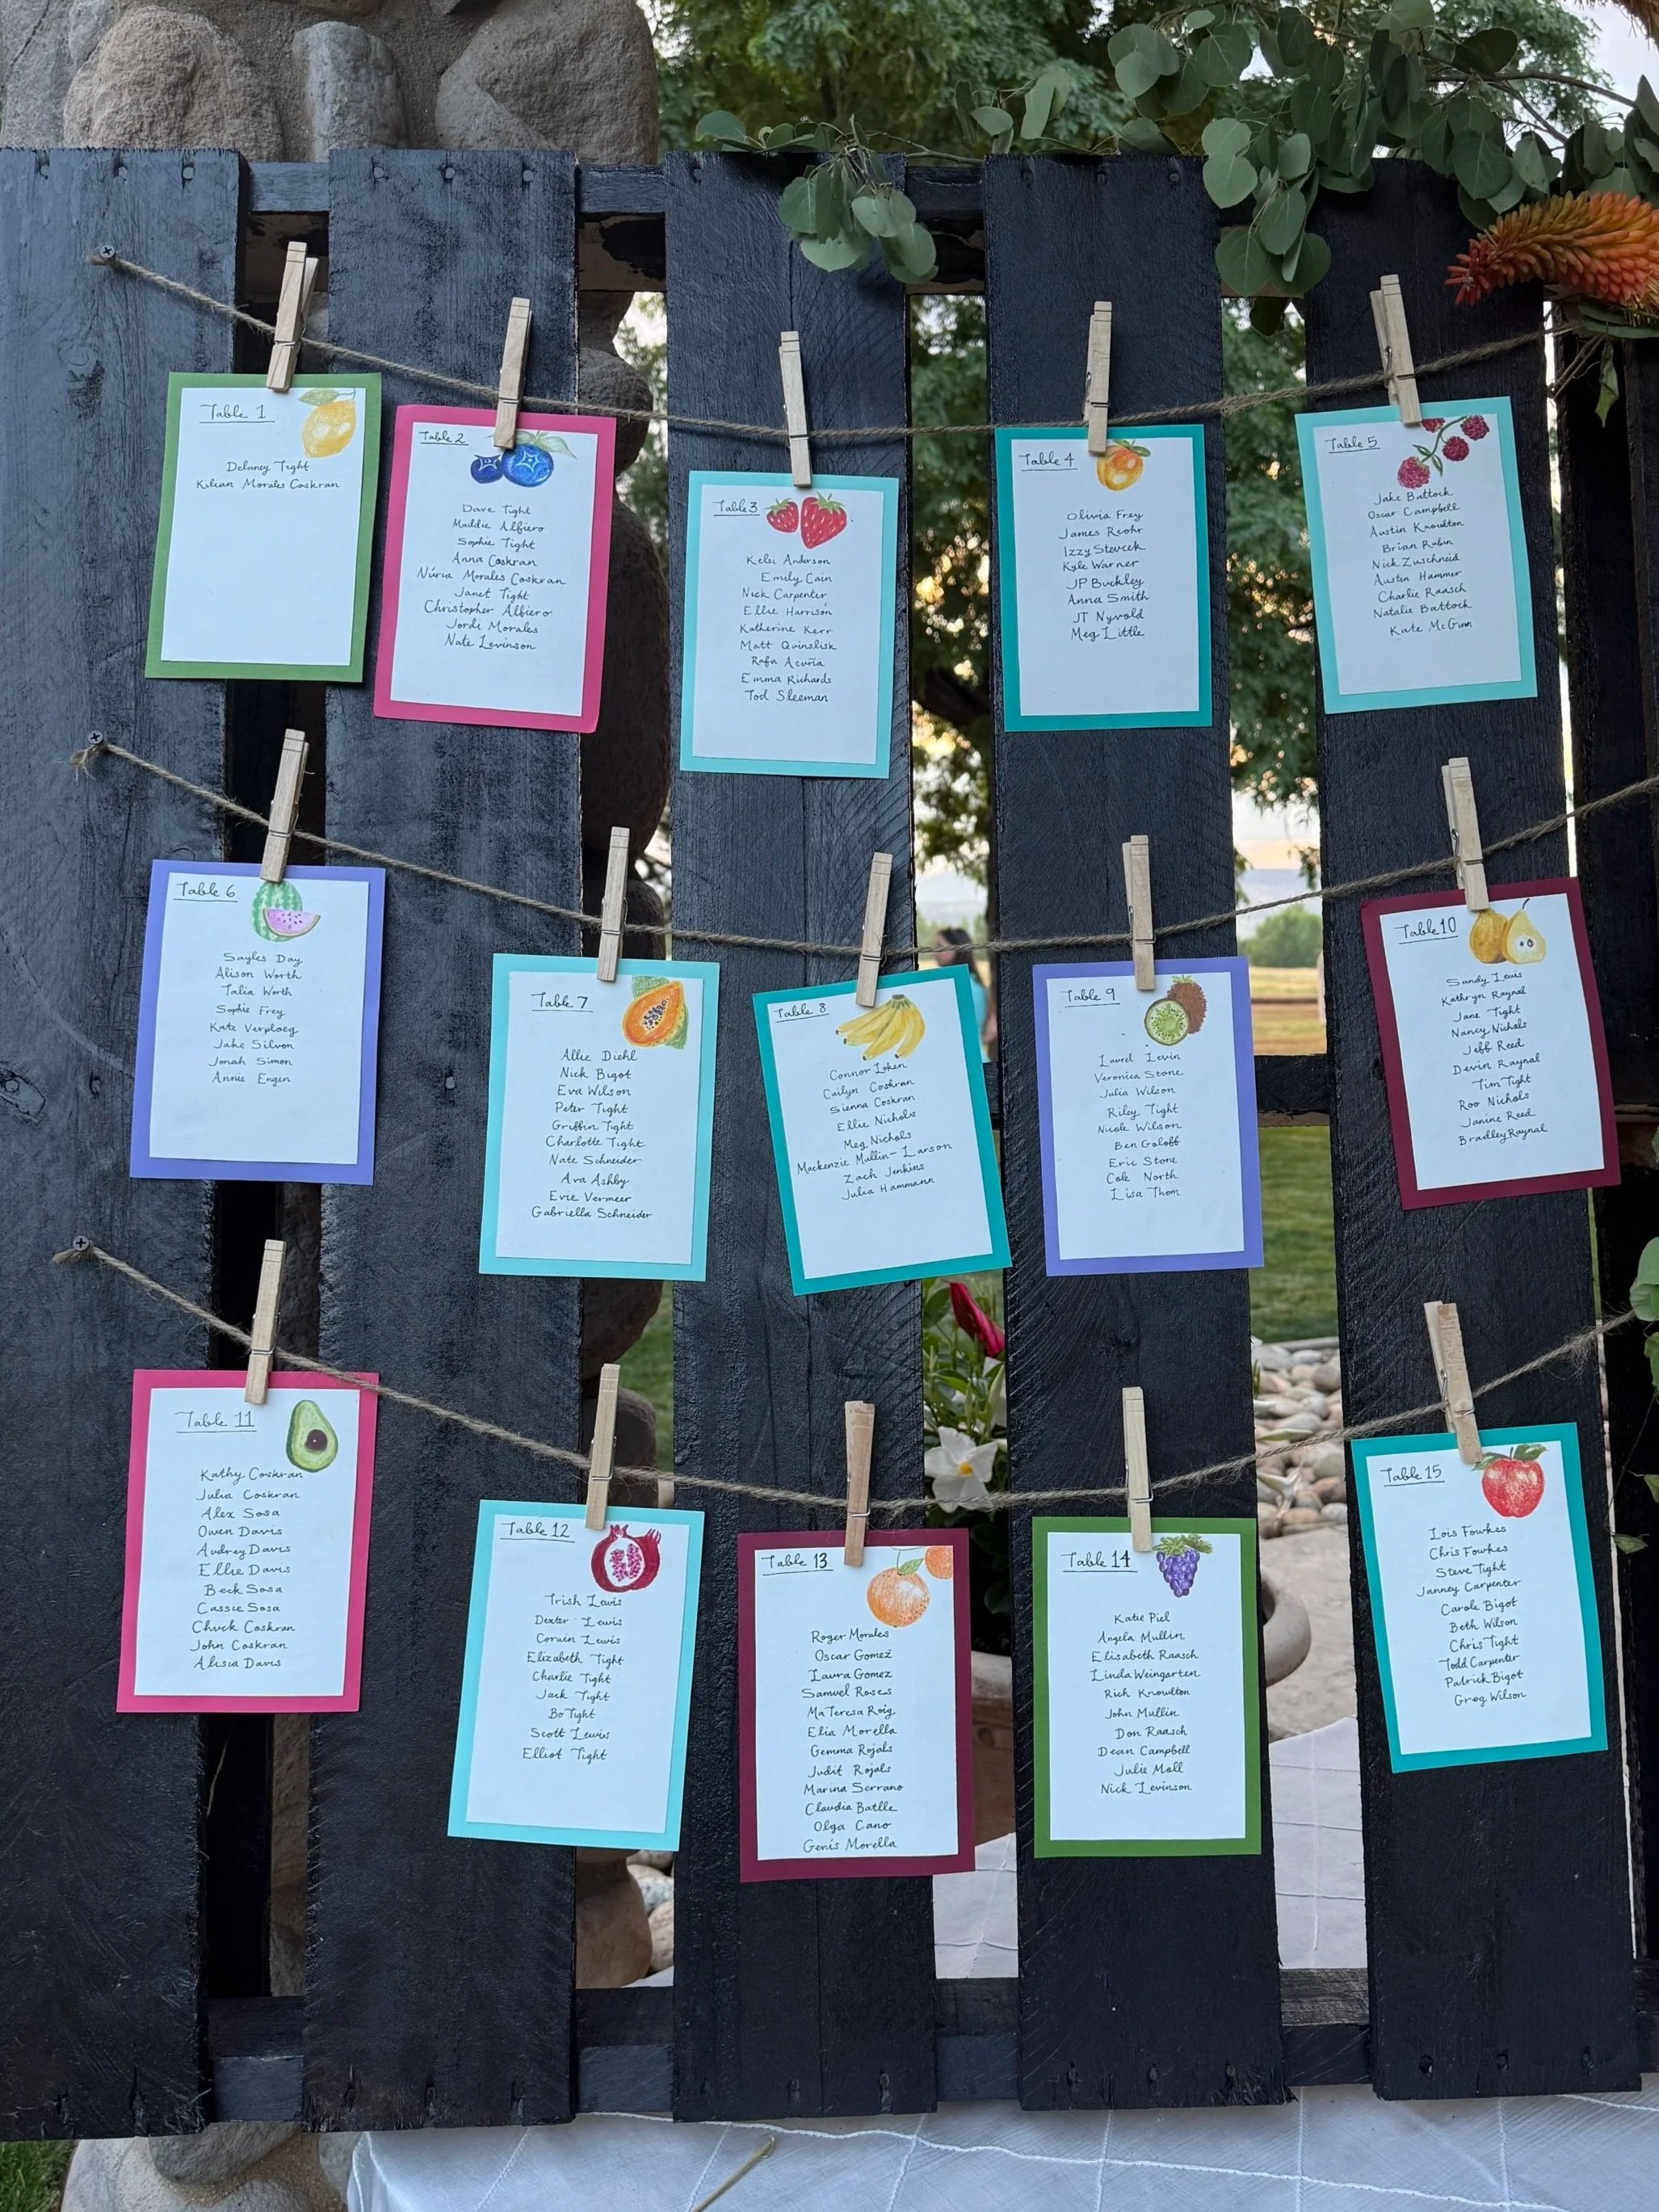 Table 1
Delaney Tight
Kilian Morales Coskran
Table 2
Dave Tight
Maddie Albiero
Sophie Tight
Anna Coskran
Núria Morales Coskran
Janet Tight
Christopher Albiero
Jordi Morales
Nate Levinson
Table 3
Kelsi Anderson
Emily Cain
Nick Carpenter
Ellie Harrison
Katherine Kerr
Matt Quinslisk
Rafa Acuña
Emma Richards
Tod Sleeman
Table 4
Olivia Frey
James Reohr
Izzy Stevcek
Kyle Warner
JP Buckley
Anna Smith
JT Nyvold
Meg Little
Table 5
Jake Battock
Oscar Campbell
Austin Knowlton
Brian Rubin
Nick Zuschneid
Austin Hammer
Charlie Raasch
Natalie Battock
Kate McGunn
Table 6
Sayles Day
Alison Worth
Talia Worth
Sophie Frey
Kate Verploeg
Jake Silvon
Jonah Simon
Annie Engen
Table 7
Allie Diehl
Nick Bigot
Eva Wilson
Peter Tight
Griffin Tight
Charlotte Tight
Nate Schneider
Ava Ashby
Evie Vermeer
Gabriella Schneider
Table 8
Connor Lohen
Cailyn Coskran
Sienna Coskran
Ellie Nichols
Meg Nichols
Mackenzie Mullin-Larson
Zach Jenkins
Julia Hammann
Table 9
Laurel Levin
Veronica Stone
Julia Wilson
Riley Tight
Nicole Wilson
Ben Goloff
Eric Stone
Cole North
Lisa Thom
Table 10
Sandy Lewis
Kathryn Raynal
Jane Tight
Nancy Nichols
Jeff Reed
Devin Raynal
Tim Tight
Roo Nichols
Janine Reed
Bradley Raynal
Table 11
Kathy Coskran
Julia Coskran
Alex Sosa
Owen Davis
Audrey Davis
Ellie Davis
Beck Sosa
Cassie Sosa
Chuck Coskran
John Coskran
Alisia Davis
Table 12
Trish Lewis
Dexter Lewis
Corwin Lewis
Elizabeth Tight
Charlie Tight
Jack Tight
Bo Tight
Scott Lewis
Elliot Tight
Table 13
Roger Morales
Oscar Gomez
Laura Gomez
Samuel Roses
MaTeresa Roig
Elia Morella
Gemma Rojals
Judit Rojals
Marina Serrano
Claudia Batlle
Olga Cano
Genís Morella
Table 14
Katie Piel
Angela Mullin
Elisabeth Raasch
Linda Weingarten
Rich Knowlton
John Mullin
Don Raasch
Dean Campbell
Julie Moll
Nick Levinson
Table 15
Lois Fowkes
Chris Fowkes
Steve Tight
Janney Carpenter
Carole Bigot
Beth Wilson
Chris Tight
Todd Carpenter
Patrick Bigot
Greg Wilson